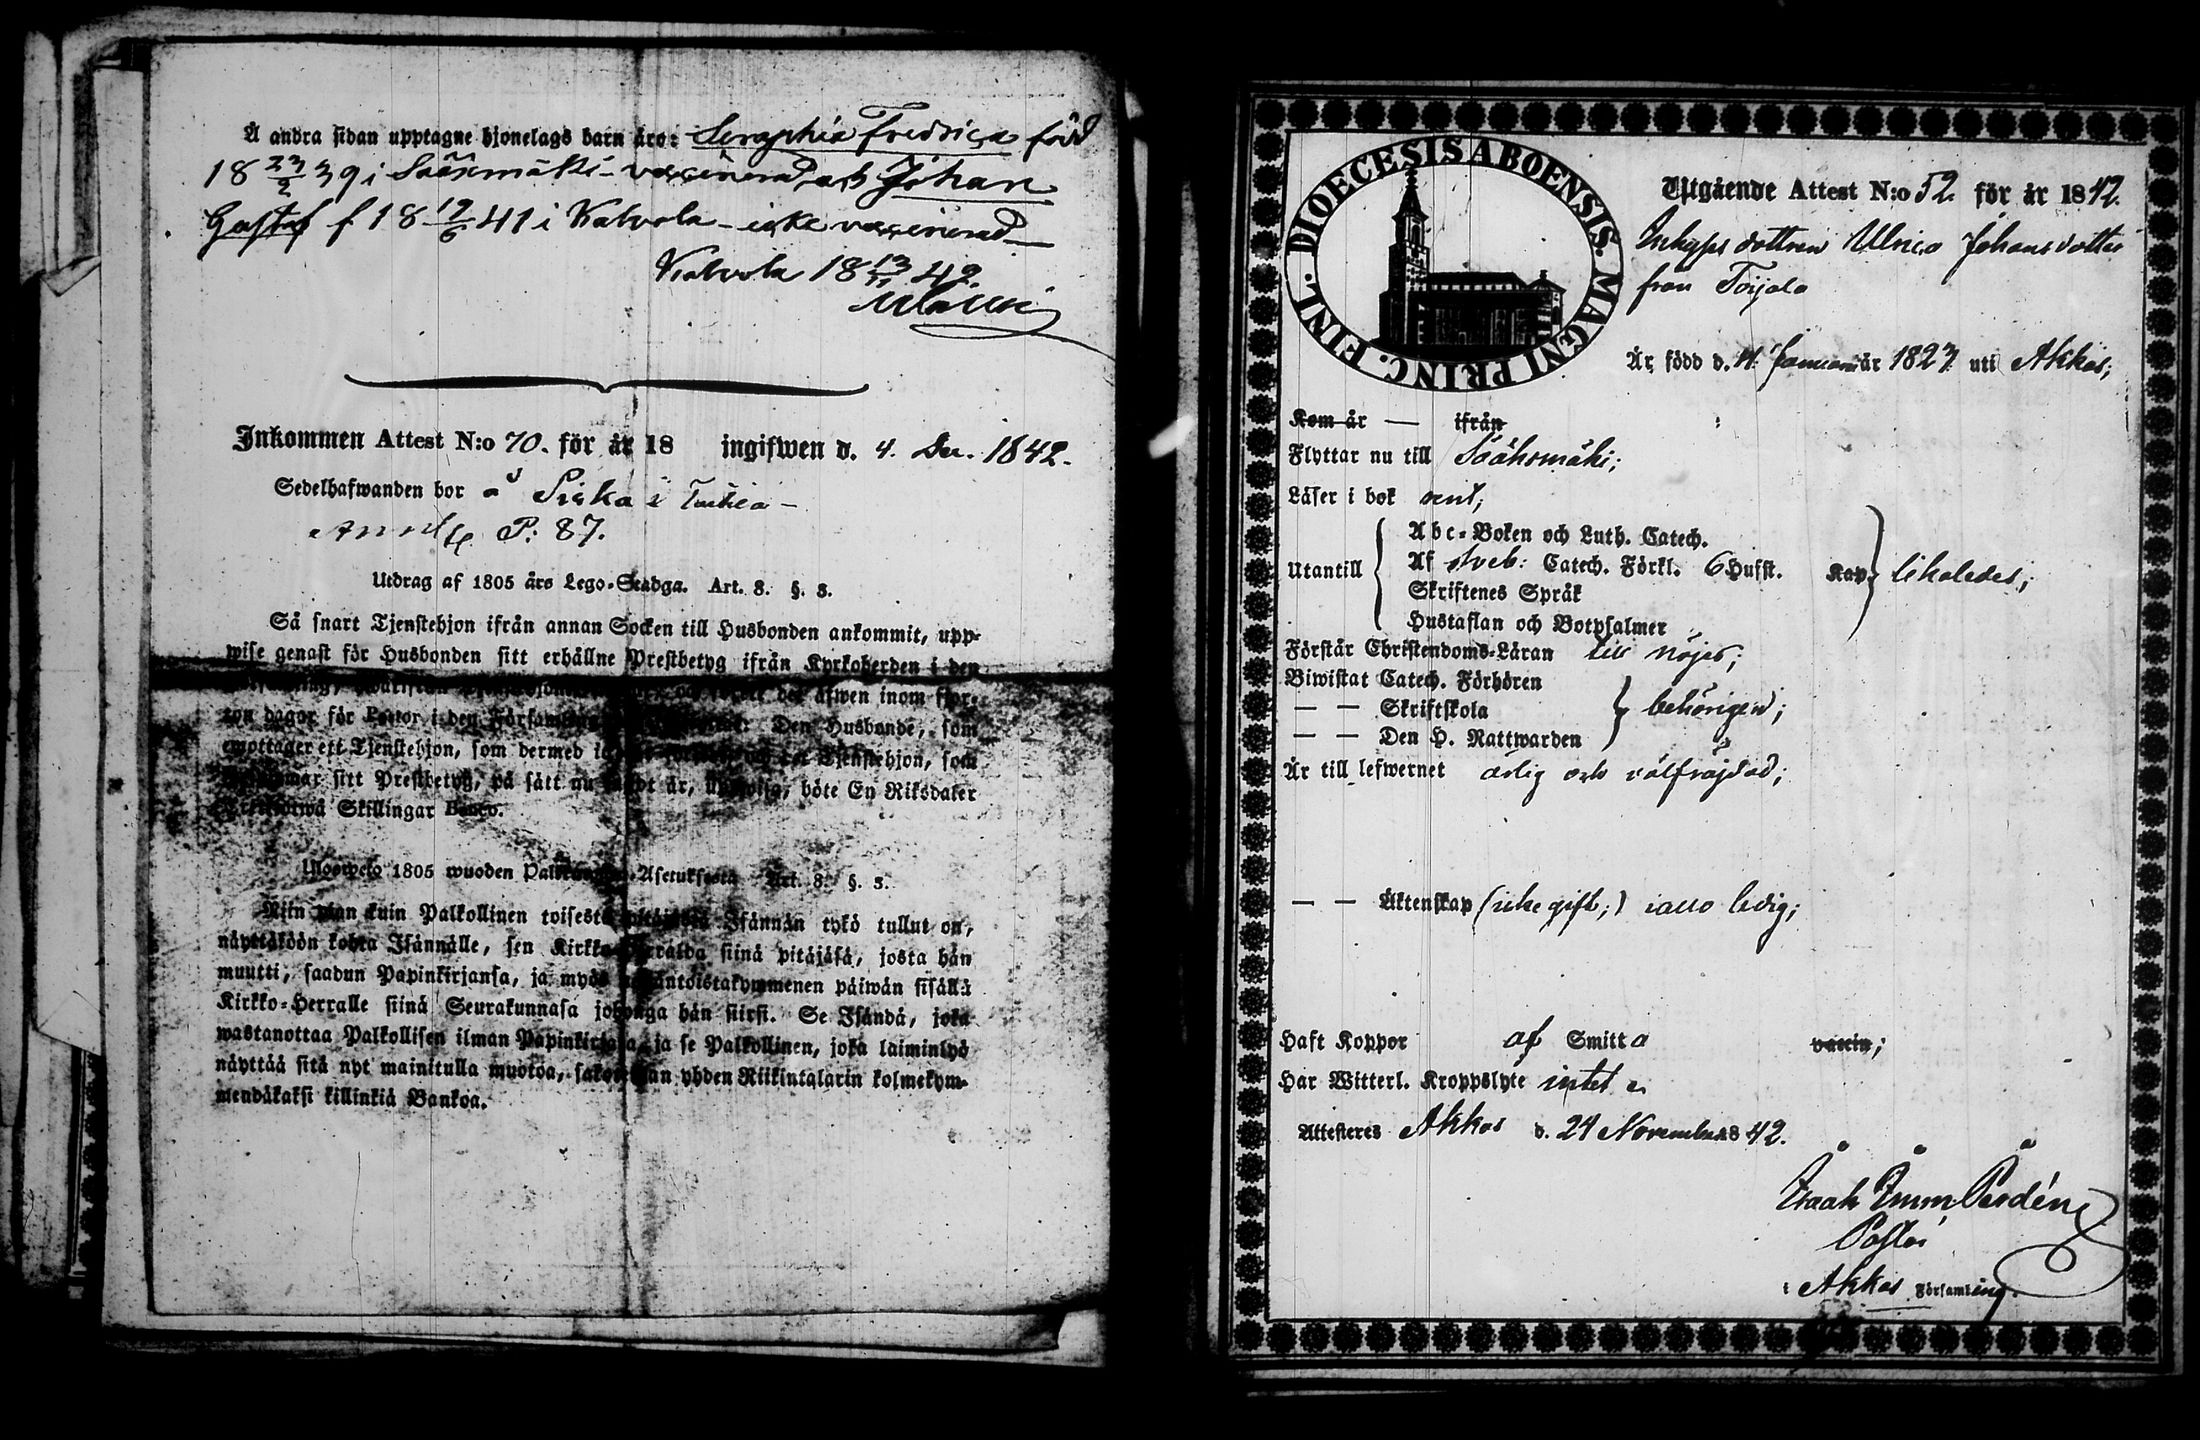 Å andra sidan upptagne hjonelags barn äro: Seraphia Fredrica född
18 23/2 39 i Sääxmäki - vaccinerad, och Johan
Gustaf f 18 19/6 41 i Kalvola - icke vaccinerad
Kalvola 18 13/11 42.
Inkommen Attest N:o 70. för år 18 ingifwen d. 4. Dec. 1842.
Sedelhafwanden bor å Sicka i
P: 87.
Utdrag af 1805 års Lego-Stadga. Art. 8. §. 3.
Så snart Tjenstehjon ifrån annan Socken till Husbonden ankommit, upp-
wise genast för Husbonden sitt erhållne Prestbetyg ifrån Kyrkoherden i den
det äfwen inom fjor-
ton dagar för Pastor i den Församling Den Husbonde, som
emottager ett Tjenstehjon, som dermed och det Tjenstehjon, som
sitt Prestbetyg, på sätt nu sagdt är, böte En Riksdaler
Skillingar Banco.
Ulosweto 1805 wuoden Art. 8. §. 3.
Niin pian kuin Palkollinen toisesta pitäjästä Isännän tykö tullut on,
näyttäköön kohta Isännälle, sen Kirkko-Herralda siinä pitäjäsä, josta hän
muutti, saadun Papinkirjansa, ja myös päiwän sisällä
Kirkko-Herralle siinä Seurakunnasa johonga hän siirsi. Se Isändä, joka
wastanottaa Palkollisen ilman Papinkirjata, ja se Palkollinen, joka laiminlyö
näyttää sitä nyt mainitulla muotoa, yhden Riikintalarin kolmekym-
mendäkaksi killinkiä Bankoa.
DIOECESIS ABOENSIS. MAGNI PRINC. FINL.
Utgående Attest N:o 52. för år 1842.
Inhyses dottren Ulrica Johansdotter
från Toijala
Är född d. 11. Januari år 1823 uti Akkas;
Kom år — ifrån
Flyttar nu till Sääksmäki;
Läser i bok rent;
Abc-Boken och Luth. Catech.
Utantill Af Sveb: Catech. Förkl. 6 Hufst. Kap. likaledes;
Skriftenes Språk
Hustaflan och Botpsalmer
Förstår Christendoms-Läran till nöjes;
Biwistat Catech. Förhören
— — Skriftskola behörigen;
— — Den H. Nattwarden
Är till lefwernet ärlig och välfräjdad;
— — Äktenskap (icke gift;) jämwäl ledig;
Haft Koppor af Smitta vaccin;
Har Witterl. Kroppslyte intet
Attesteras Akkas d. 24 November 1842.
Isaak Imm
Pastor
i Akkas Församling.